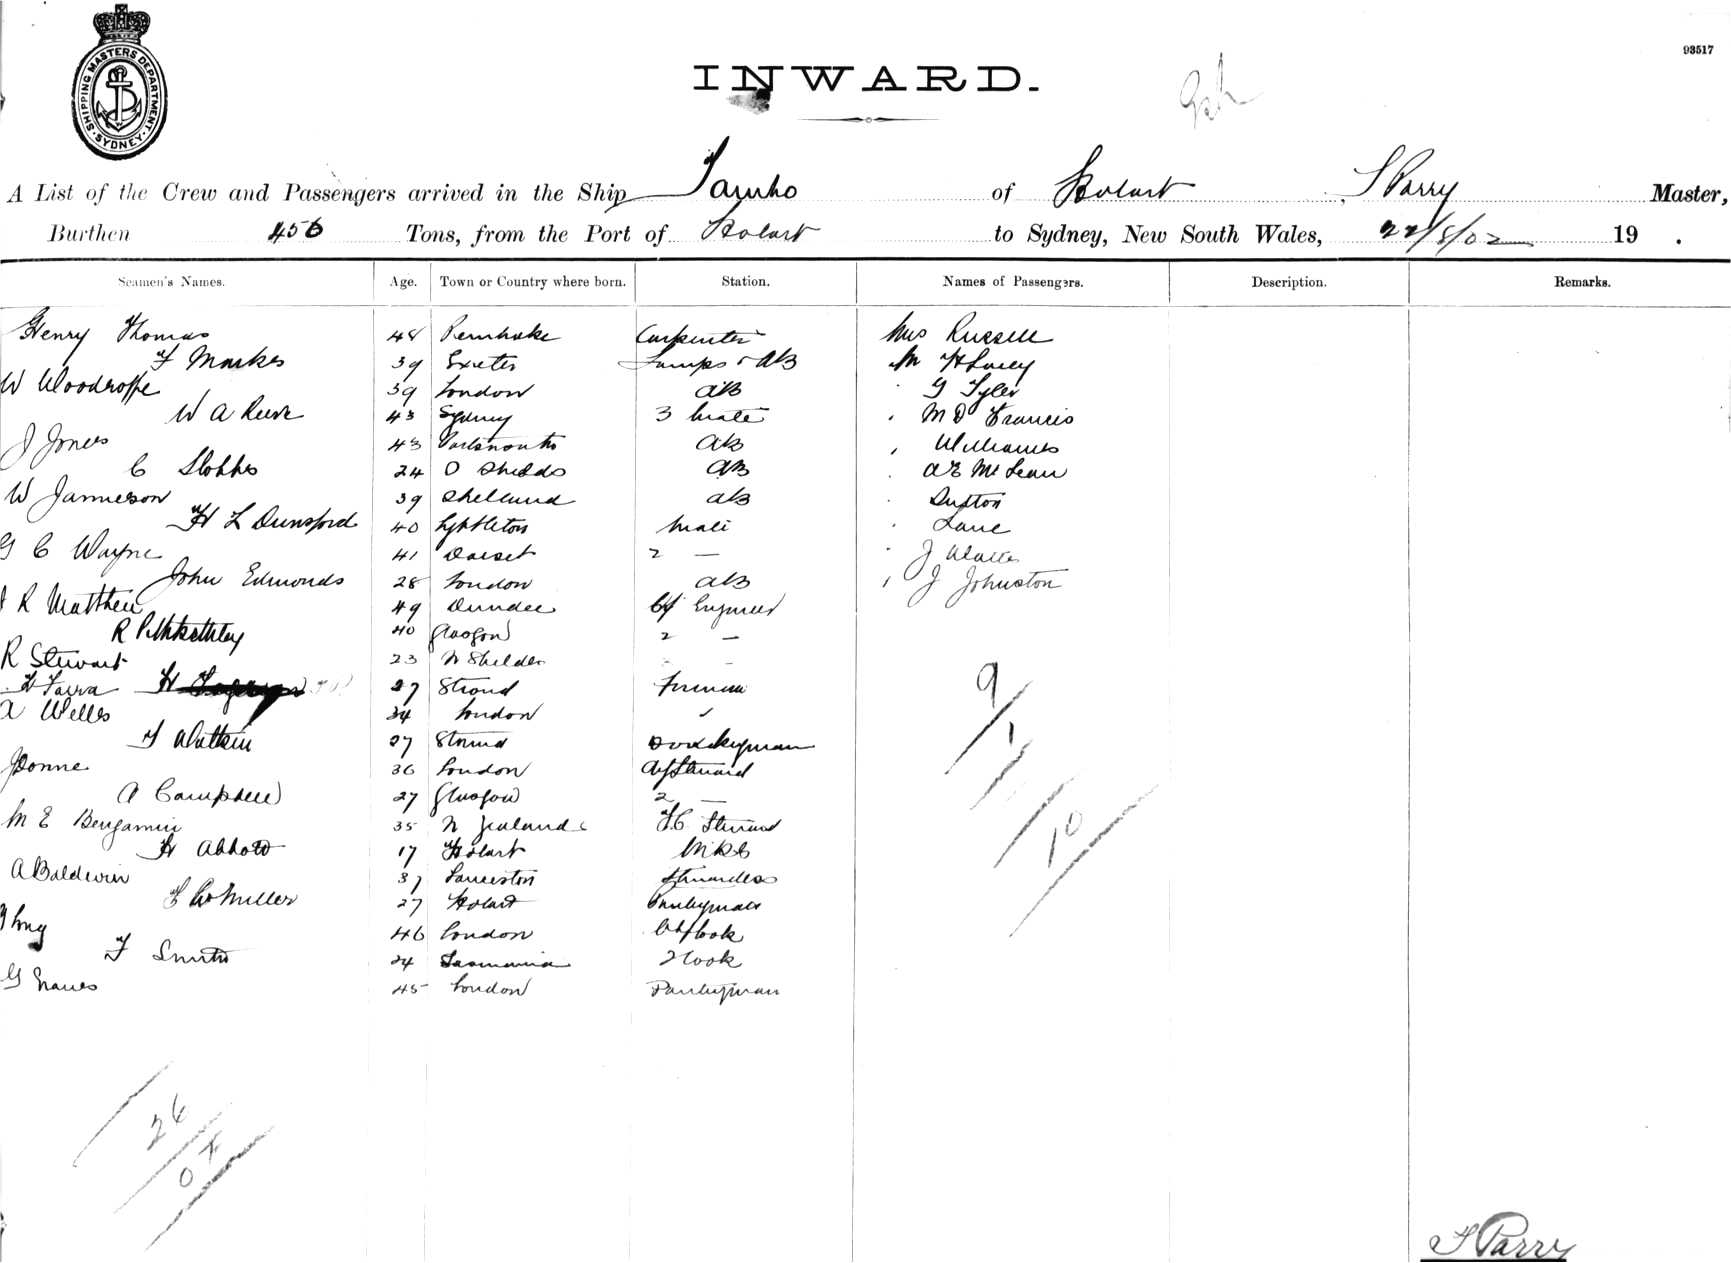 93517
SHIPPING MASTERS DEPARTMENT. SYDNEY
INWARD.
A List of the Crew and Passengers arrived in the Ship of Hobart, Parry Master,
Burthen 456 Tons, from the Port of Hobart to Sydney, New South Wales, 22/8/02 19 .
Seamen's Names. Age. Town or Country where born. Station. Names of Passengers. Description. Remarks.
Henry Thomas 48 Pembroke Carpenter Mrs Russell
F Markes 39 Exeter Lamps & AB Mr
W Woodroffe 39 London AB G Tyler
W A Reeve 43 Sydney 3 Mate M D Francis
J Jones 43 Portsmouth AB Williams
C Stobbs 24 Shields AB A E McLean
W Jamieson 39 Shetland AB
H L Dunsford 40 Lyttleton Mate Lane
G C Wayne 41 Dorset 2 — J
John Edmonds 28 London AB J Johnston
R Matthew 49 Dundee Cf Engineer
R 40 Glasgow 2 —
R Stewart 23 N Shields - -
H Farra H 27 Stroud Fireman
A Wells 34 London
F Watkin 27 Donkeyman
36 London Steward
A Campbell 27 Glasgow 2 —
M E Benjamin 35 N Zealand F.C. Steward
H Abbott 17 Hobart
A Baldwin 37 Launceston Stewardess
Miller 27 Hobart Pantryman
46 London Ch Cook
F Smith 24 Tasmania 2 Cook
G 45 London Pantryman
9
1
10
26
Parry